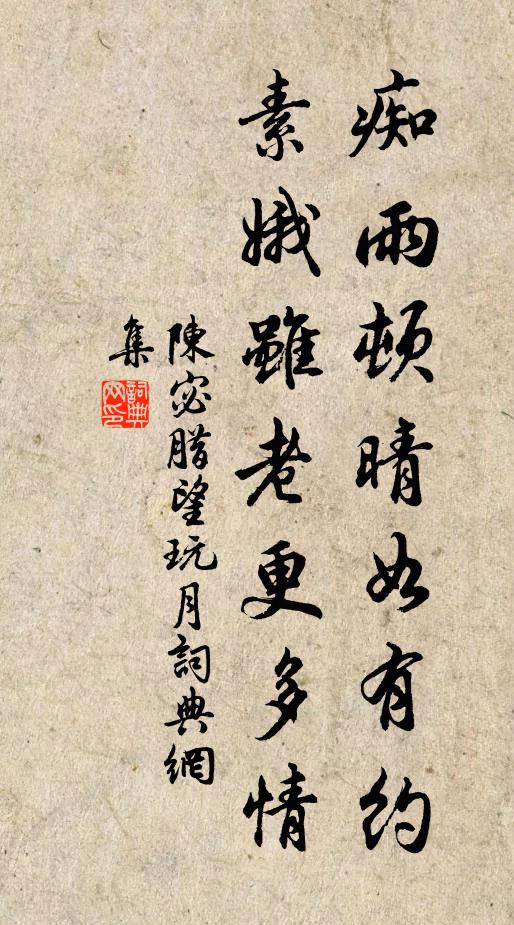 痴雨頓晴如有約
素娥雖老更多情
陳宓腊望玩月詞典網
集
詞典
网印